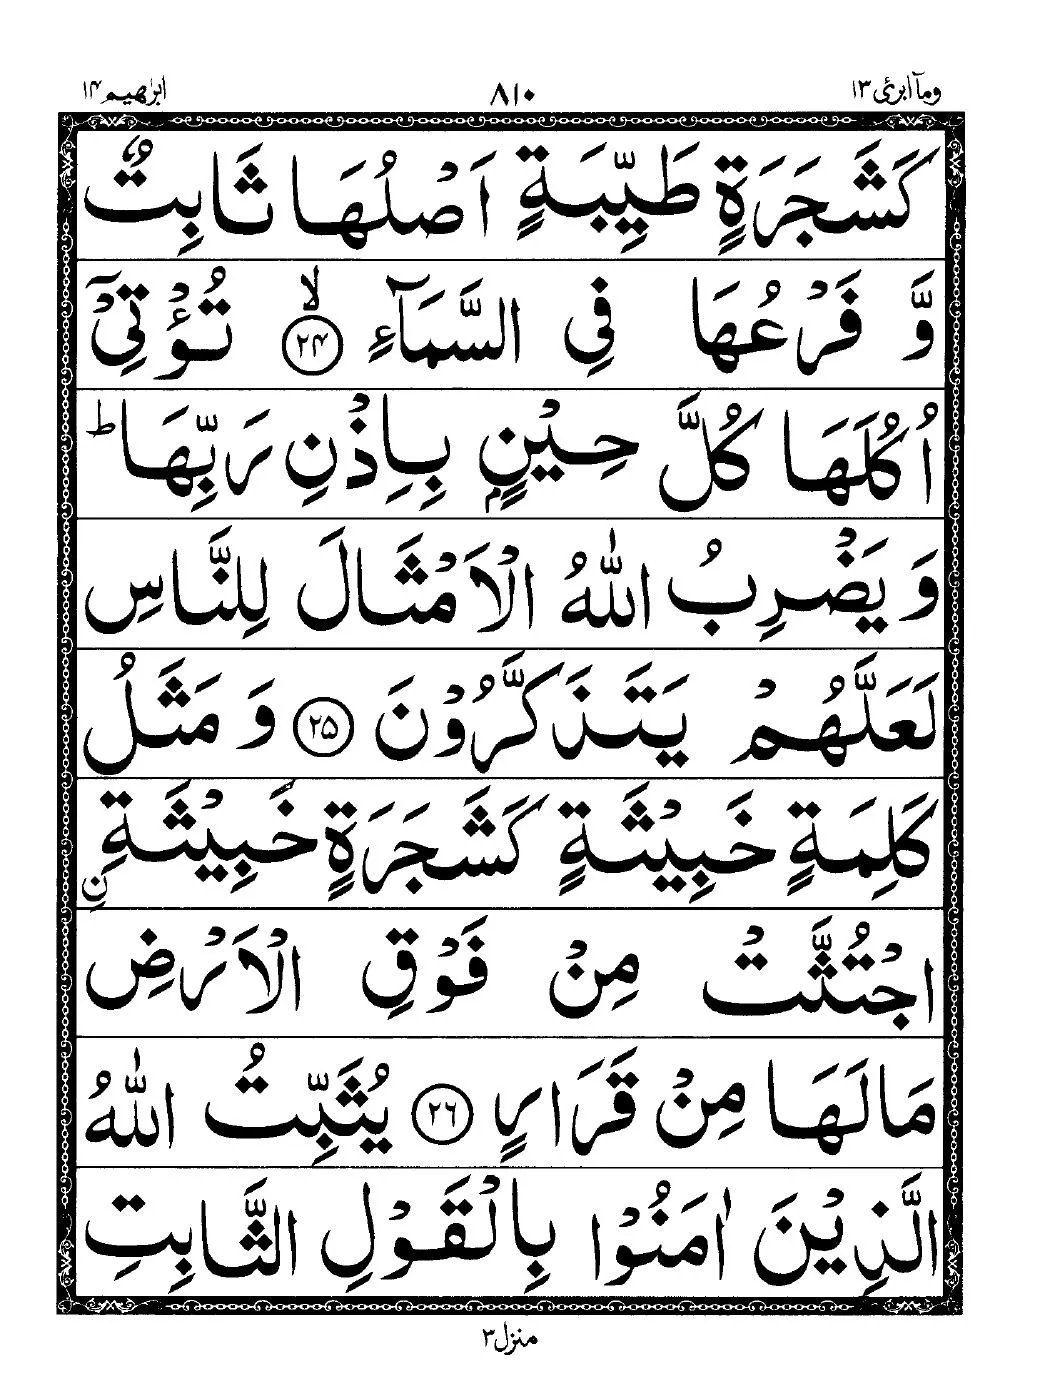 ومآ ابرئ ١٣
٨١٠
ابرٰهيم ١٤
كَشَجَرَةٍ طَيِّبَةٍ اَصْلُهَا ثَابِتٌ
وَّ فَرْعُهَا فِى السَّمَآءِ ۙ﴿۲۴﴾ تُؤْتِىْٓ
اُكُلَهَا كُلَّ حِيْنٍۭ بِاِذْنِ رَبِّهَا ؕ
وَ يَضْرِبُ اللّٰهُ الْاَمْثَالَ لِلنَّاسِ
لَعَلَّهُمْ يَتَذَكَّرُوْنَ ﴿۲۵﴾ وَ مَثَلُ
كَلِمَةٍ خَبِيْثَةٍ كَشَجَرَةٍ خَبِيْثَةِ ِۨ
اجْتُثَّتْ مِنْ فَوْقِ الْاَرْضِ
مَا لَهَا مِنْ قَرَارٍ ﴿۲۶﴾ يُثَبِّتُ اللّٰهُ
الَّذِيْنَ اٰمَنُوْا بِالْقَوْلِ الثَّابِتِ
منزل ٣